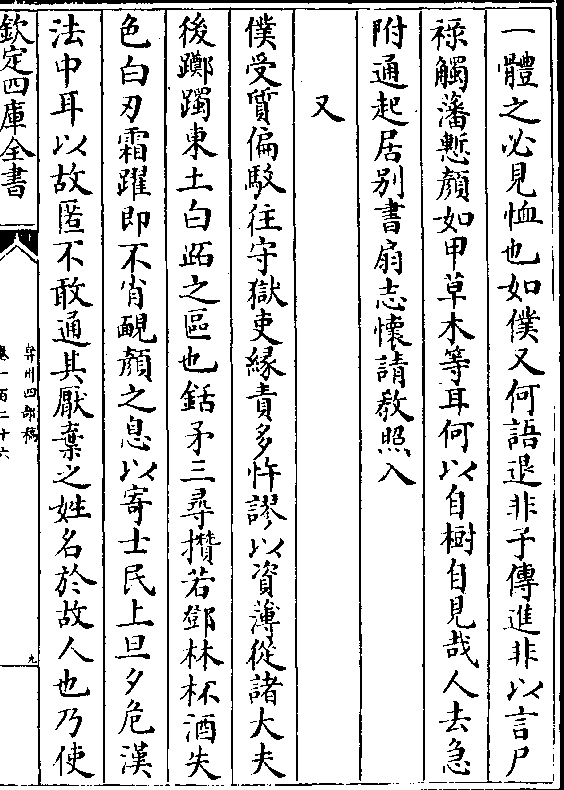 一體之必見恤也如僕又何語退非子傳進非以言尸
祿觸藩慙顔如甲草木等耳何以自樹自見哉人去急
附通起居别書扇志懷請教照入
又
僕受質偏駮往守獄吏緣責多忤謬以資薄從諸大夫
後躑躅東土白跖之區也銛矛三尋攢若鄧林杯酒失
色白刃霜躍即不肖靦顔之息以寄士民上旦夕危漢
法中耳以故匿不敢通其厭棄之姓名於故人也乃使
欽定四庫全書
弇州四部稿
卷一百二十六
九